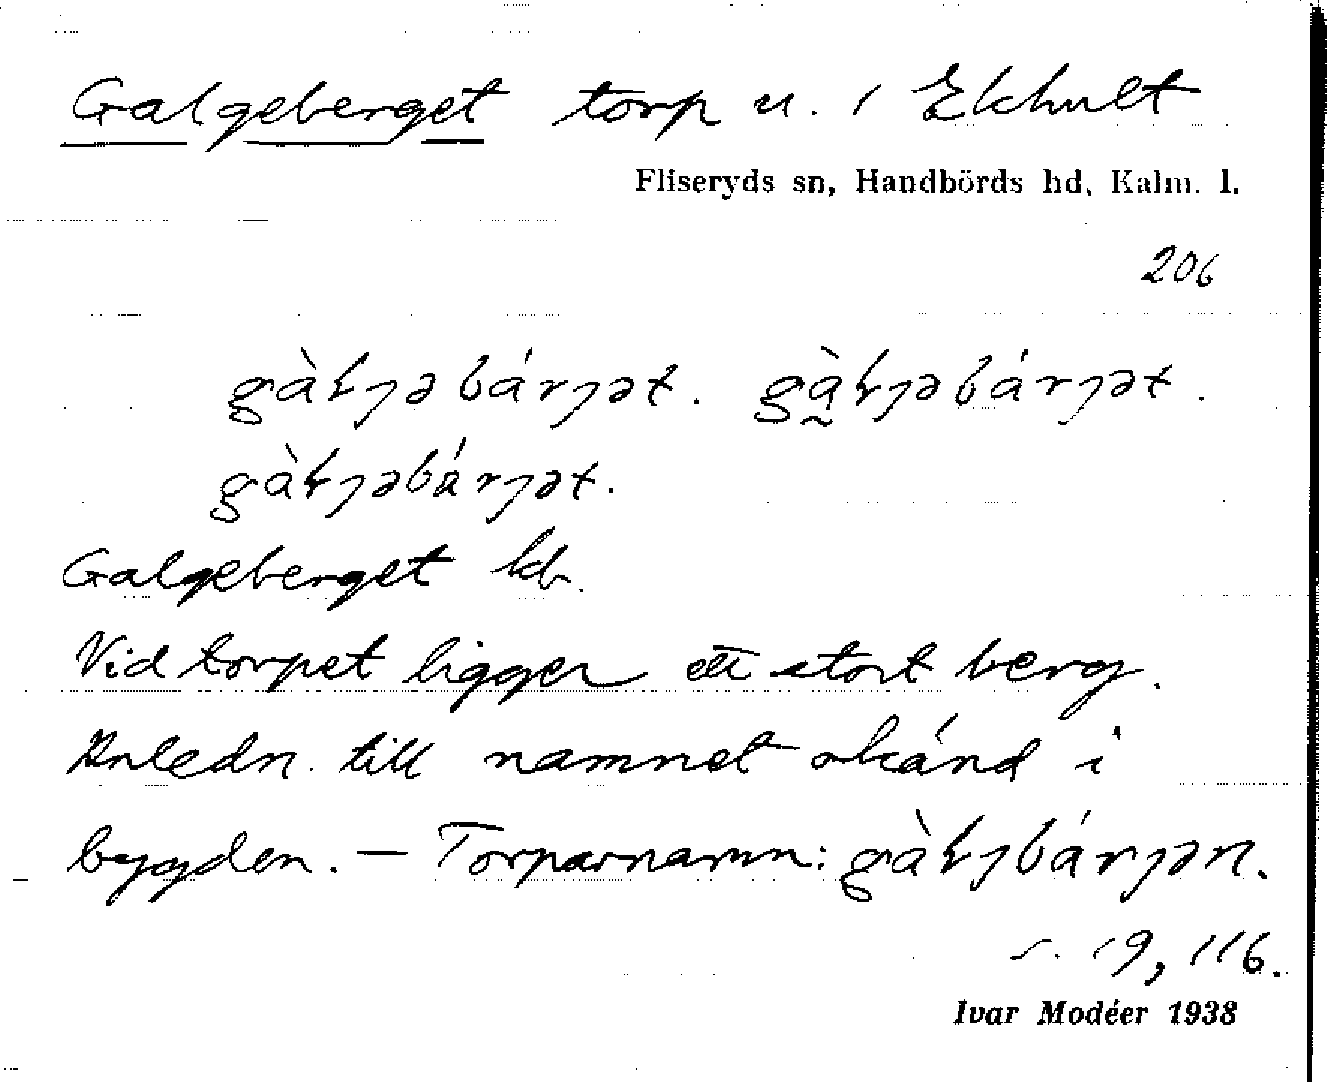 Galgeberget torp u. 1 Ekhult
Fliseryds sn, Handbörds hd, Kalm. l.
206
gàƚȷəbárȷət. gà̰ƚȷəbárȷət.
gàƚȷəbárȷət.
Galgeberget kb.
Vid torpet ligger ett stort berg.
Anledn. till namnet okänd i
bygden. — Torparnamn: gàƚȷbárȷən.
s. 19, 116.
Ivar Modéer 1938